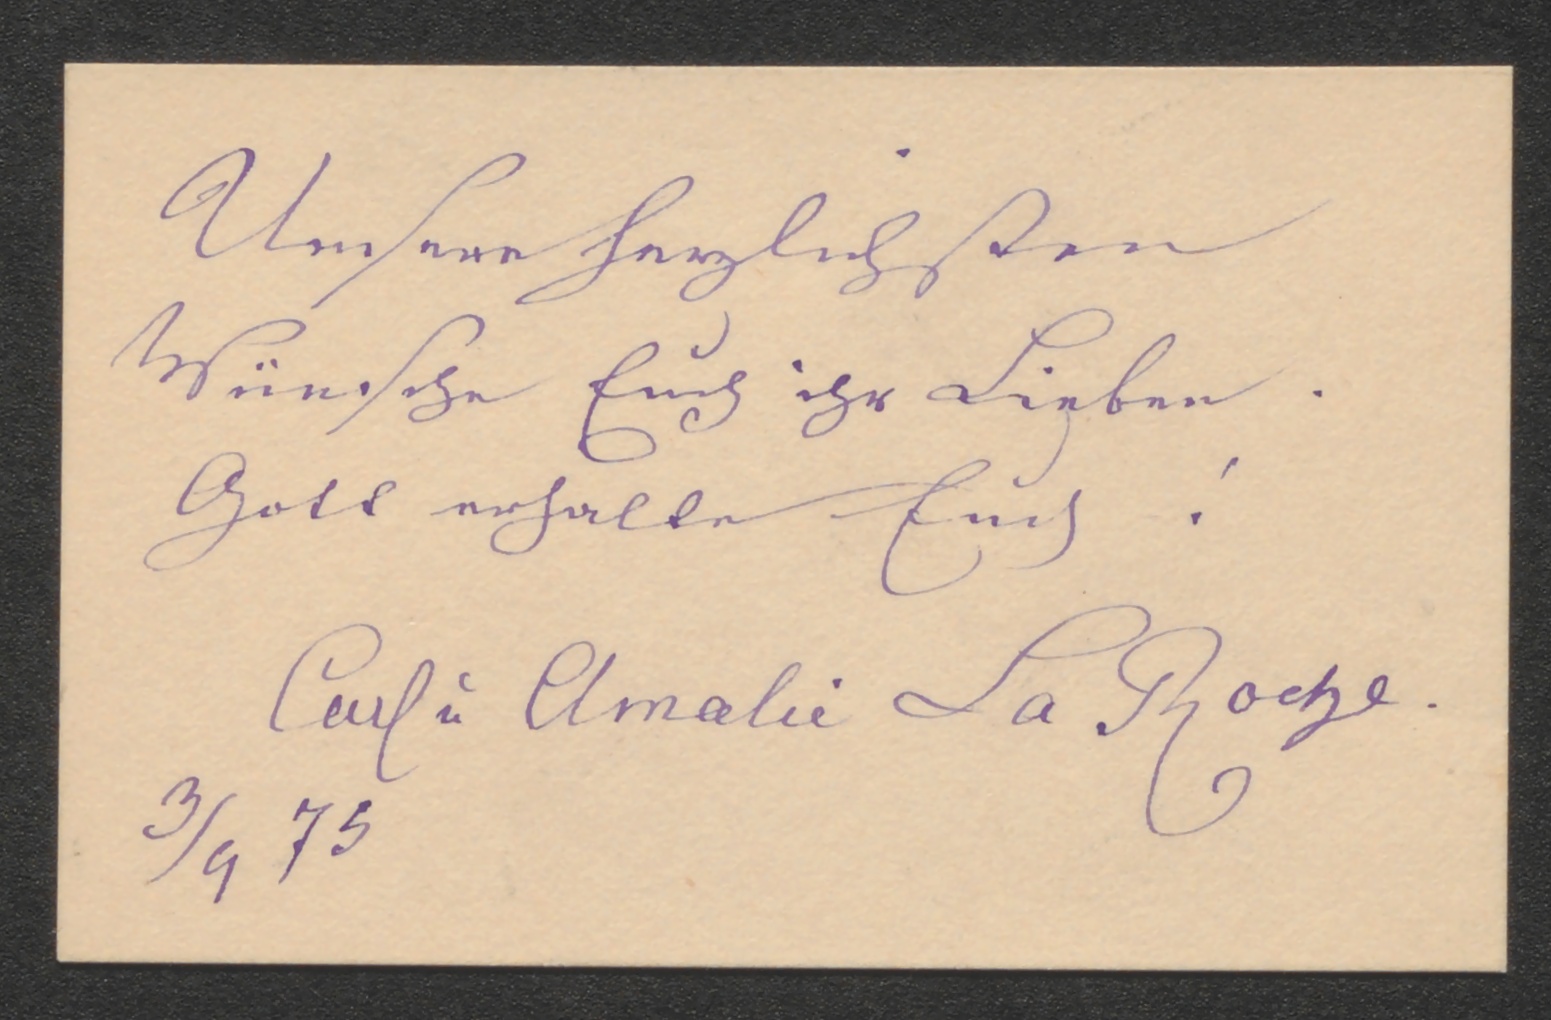 Unsere herzlichsten
Wünsche Euch ihr Lieben.
Gott erhalte Euch!
Carl u Amalie La Roche.
3/9 75